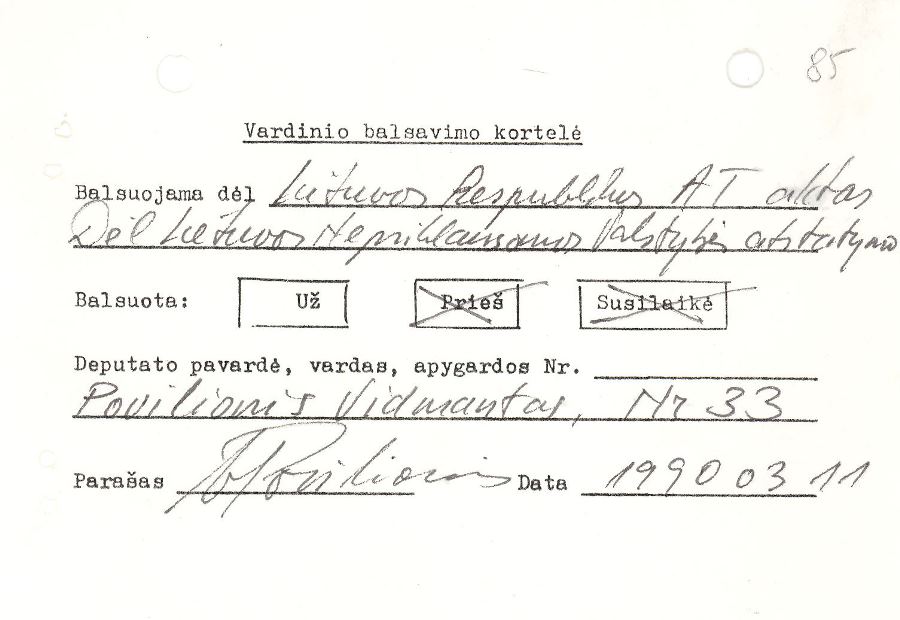 85
Vardinio balsavimo kortelė
Balsuojama dėl Lietuvos Respublikos AT aktas
Dėl Lietuvos Nepriklausomos Valstybės atstatymo
Balsuota: Už Prieš Susilaikė
Deputato pavardė, vardas, apygardos Nr.
Povilionis Vidmantas, Nr 33
Parašas Povilionis Data 1990 03 11